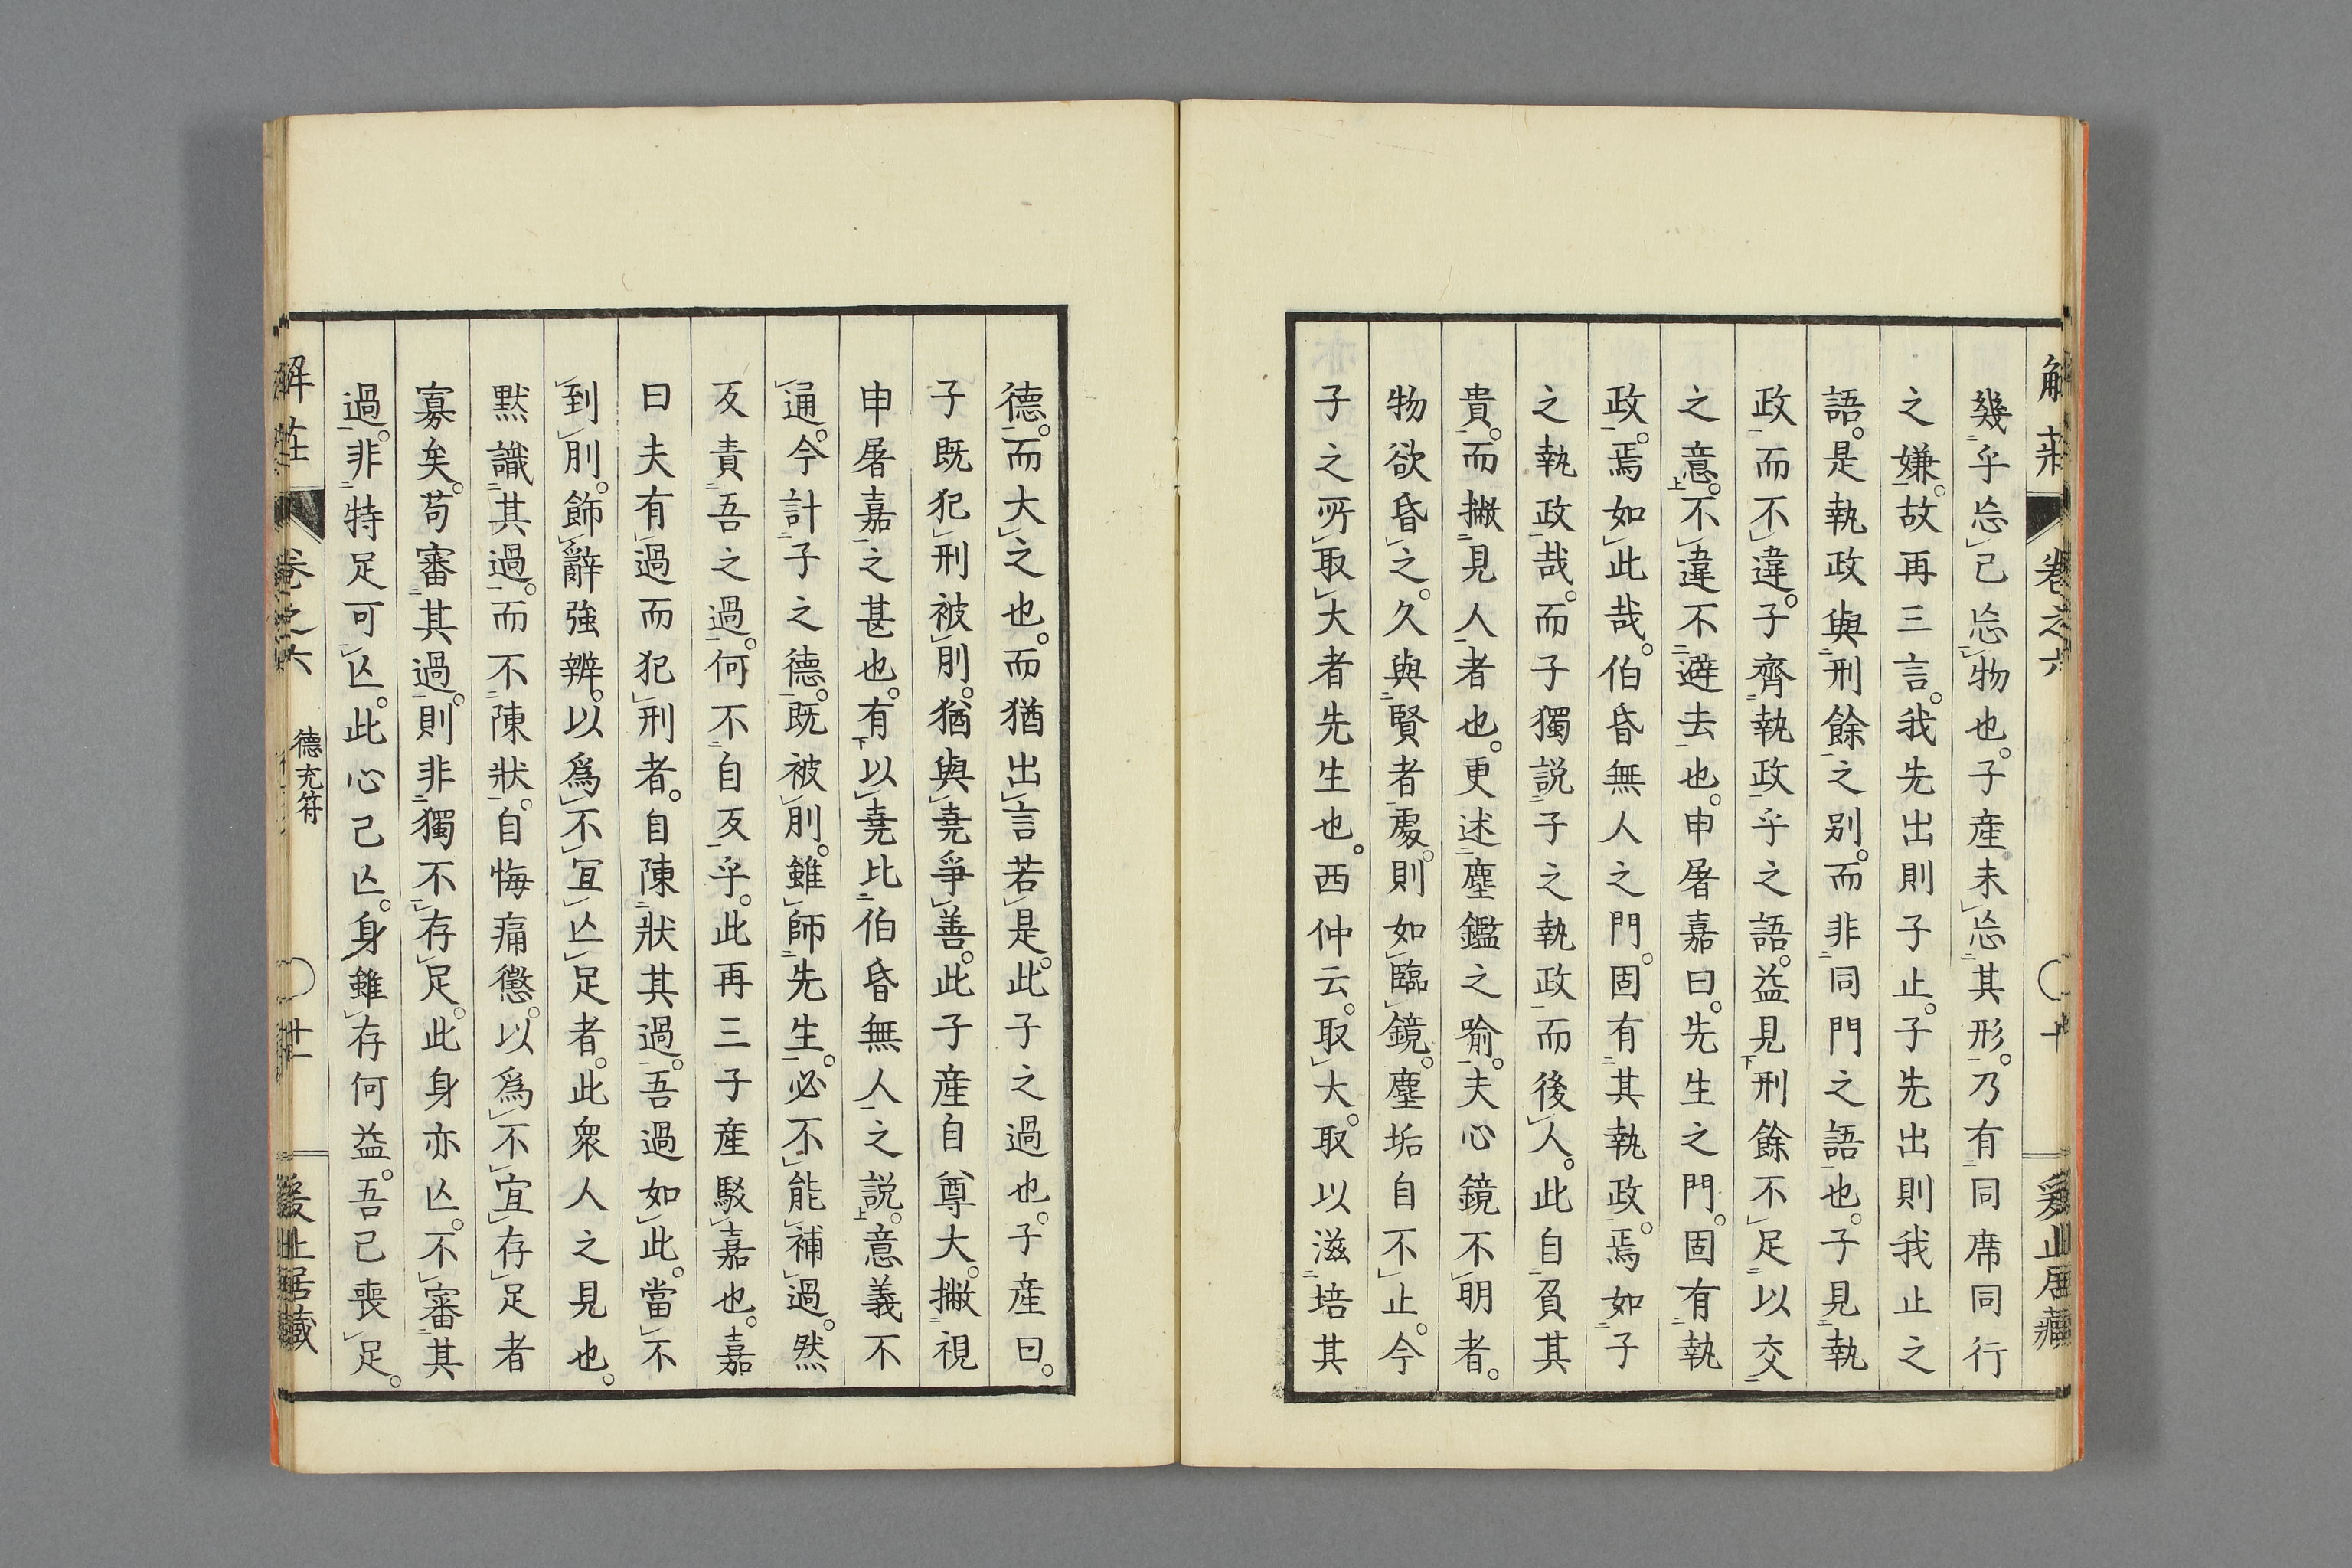 幾乎忘己忘物也。子產未忘其形。乃有同席同行
之嫌。故再三言。我先出則子止。子先出則我止之
語。是執政與刑餘之別。而非同門之語也。子見執
政而不違。子齊執政乎之語。益見刑餘不足以交
之意。不違不避去也。申屠嘉曰。先生之門。固有執
政。焉如此哉。伯昏無人之門。固有其執政。焉如子
之執政哉。而子獨説子之執政而後人。此自負其
貴。而撇見人者也。更述塵鑑之喻。夫心鏡不明者。
物欲昏之。久與賢者處。則如臨鏡。塵垢自不止。今
子之所取大者先生也。西仲云。取大。取以滋培其
德。而大之也。而猶出言若是。此子之過也。子產曰。
子既犯刑被刖。猶與堯爭善。此子產自尊大。撇視
申屠嘉之甚也。有以堯比伯昏無人之説。意義不
通。今計子之德。既被刖。雖師先生。必不能補過。然
反責吾之過。何不自反乎。此再三子產駁嘉也。嘉
曰夫有過而犯刑者。自陳狀其過。吾過如此。當不
到刖。飾辭強辨。以爲不宜亾足者。此衆人之見也。
默識其過。而不陳狀。自悔痛懲。以爲不宜存足者
寡矣。苟審其過。則非獨不存足。此身亦亾。不審其
過。非特足可亾。此心己亾。身雖存何益。吾己喪足。
解莊
卷之六
德充符
廿一